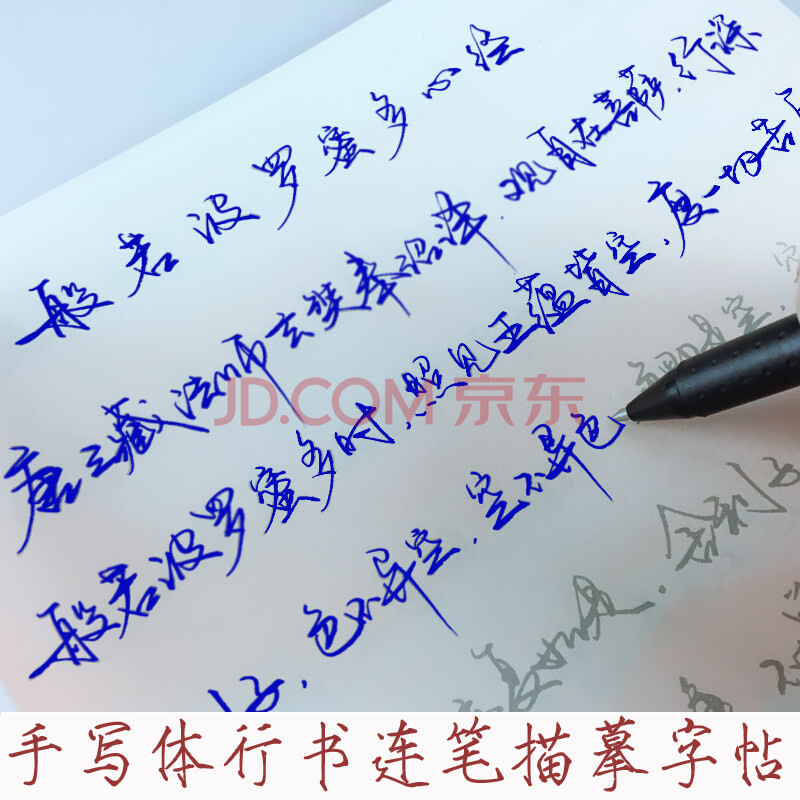 般若波罗蜜多心经
唐三藏法师玄奘奉诏译.观自在菩萨.行深
般若波罗蜜多时.照见五蕴皆空.度一切苦
子.色不异空.空不异色
亦复如是.舍利子
JD.COM 京东
手写体行书连笔描摹字帖